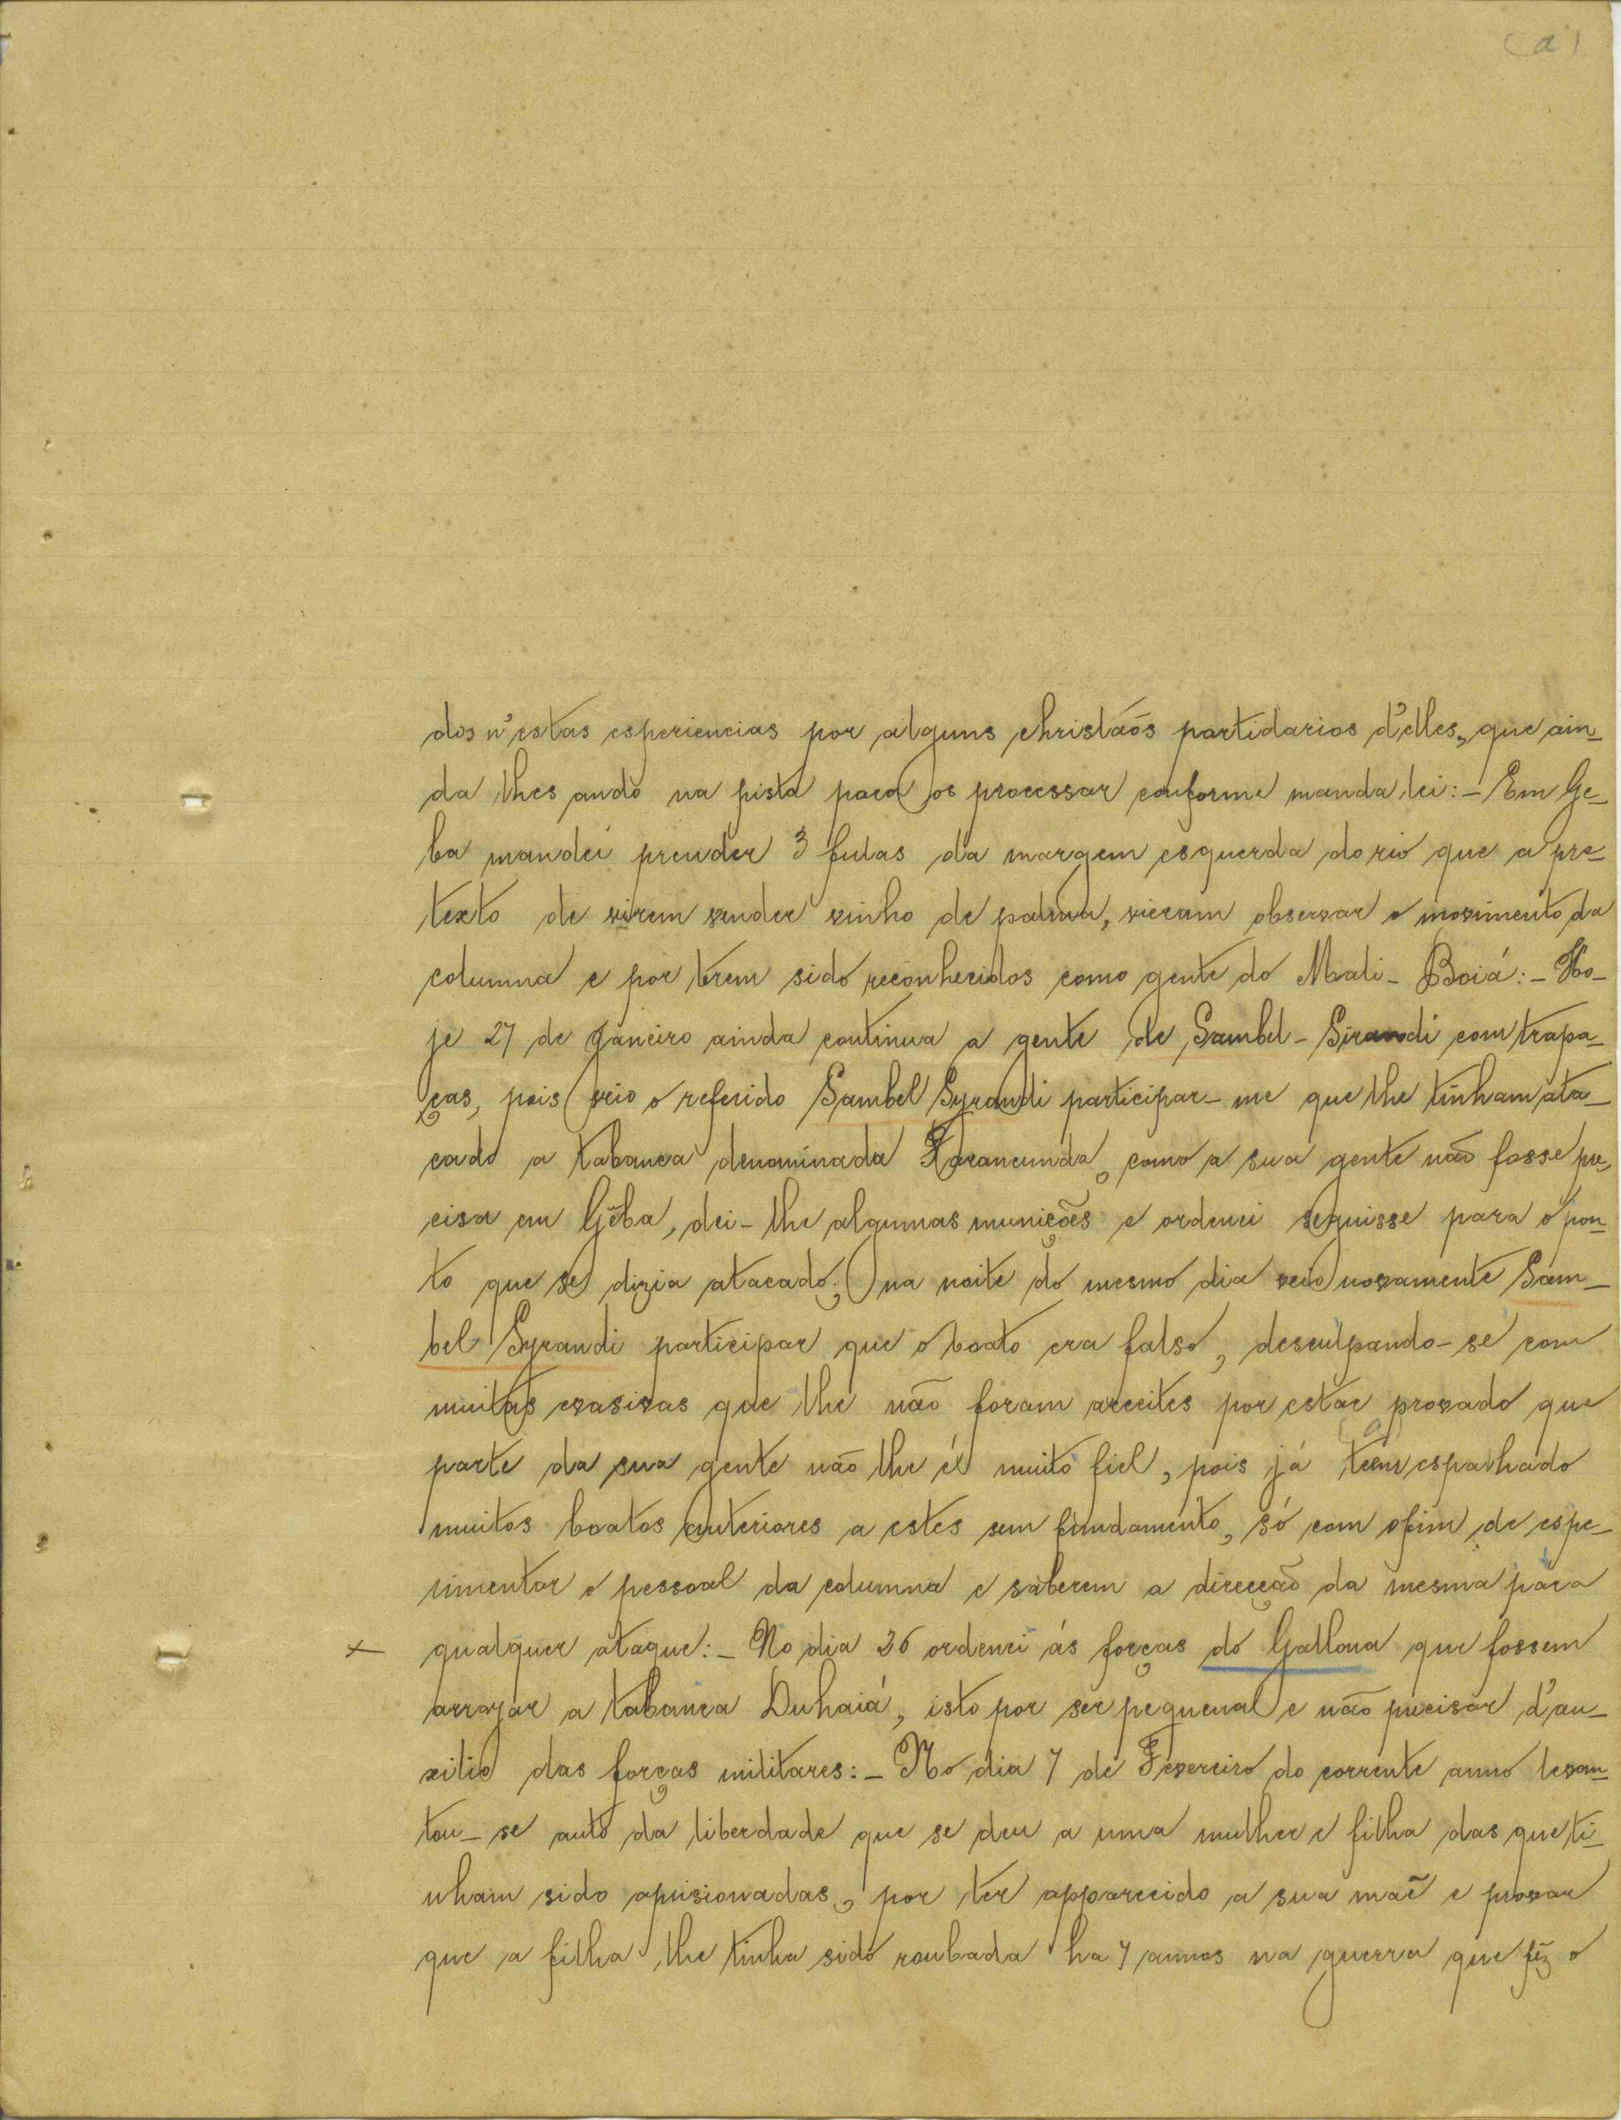 (a)
dos n'estas esperiencias por alguns christãos partidarios d'elles, que ain-
da lhes ando na pista para os processar conforme manda lei:- Em Ge-
ba mandei prender 3 fulas da margem esquerda do rio que a pre-
texto de virem vender vinho de palma, vieram observar o movimento da
columna e por terem sido reconhecidos como gente do Mali-Boiá:- Ho-
je 27 de Janeiro ainda continua a gente de Sambel-Sirandi com trapa-
ças, pois veio o referido Sambel Syrandi participar-me que lhe tinham ata-
cado a tabanca denominada como a sua gente não fosse pre-
cisa em Gêba, dei-lhe algumas munições e ordenei seguisse para o pon-
to que se dizia atacado; na noite do mesmo dia veio novamente Sam-
bel Syrandi participar que o boato era falso, desculpando-se com
muitas evasivas que lhe não foram acceites por estar provado que
parte da sua gente não lhe é muito fiel, pois já teem espalhado
muitos boatos anteriores a estes sem fundamento, só com o fim de espe-
rimentar o pessoal da columna e saberem a direcção da mesma para
qualquer ataque:- No dia 26 ordenei ás forças do Gallona que fossem
arrazar a tabanca Duhaiá, isto por ser pequena e não precisar d'au-
xilio das forças militares:- No dia 7 de Fevereiro do corrente anno levan-
tou-se auto da liberdade que se deu a uma mulher e filha das que ti-
nham sido aprisionadas, por ter apparecido a sua mãe e provar
que a filha lhe tinha sido roubada ha 7 annos na guerra que fez o